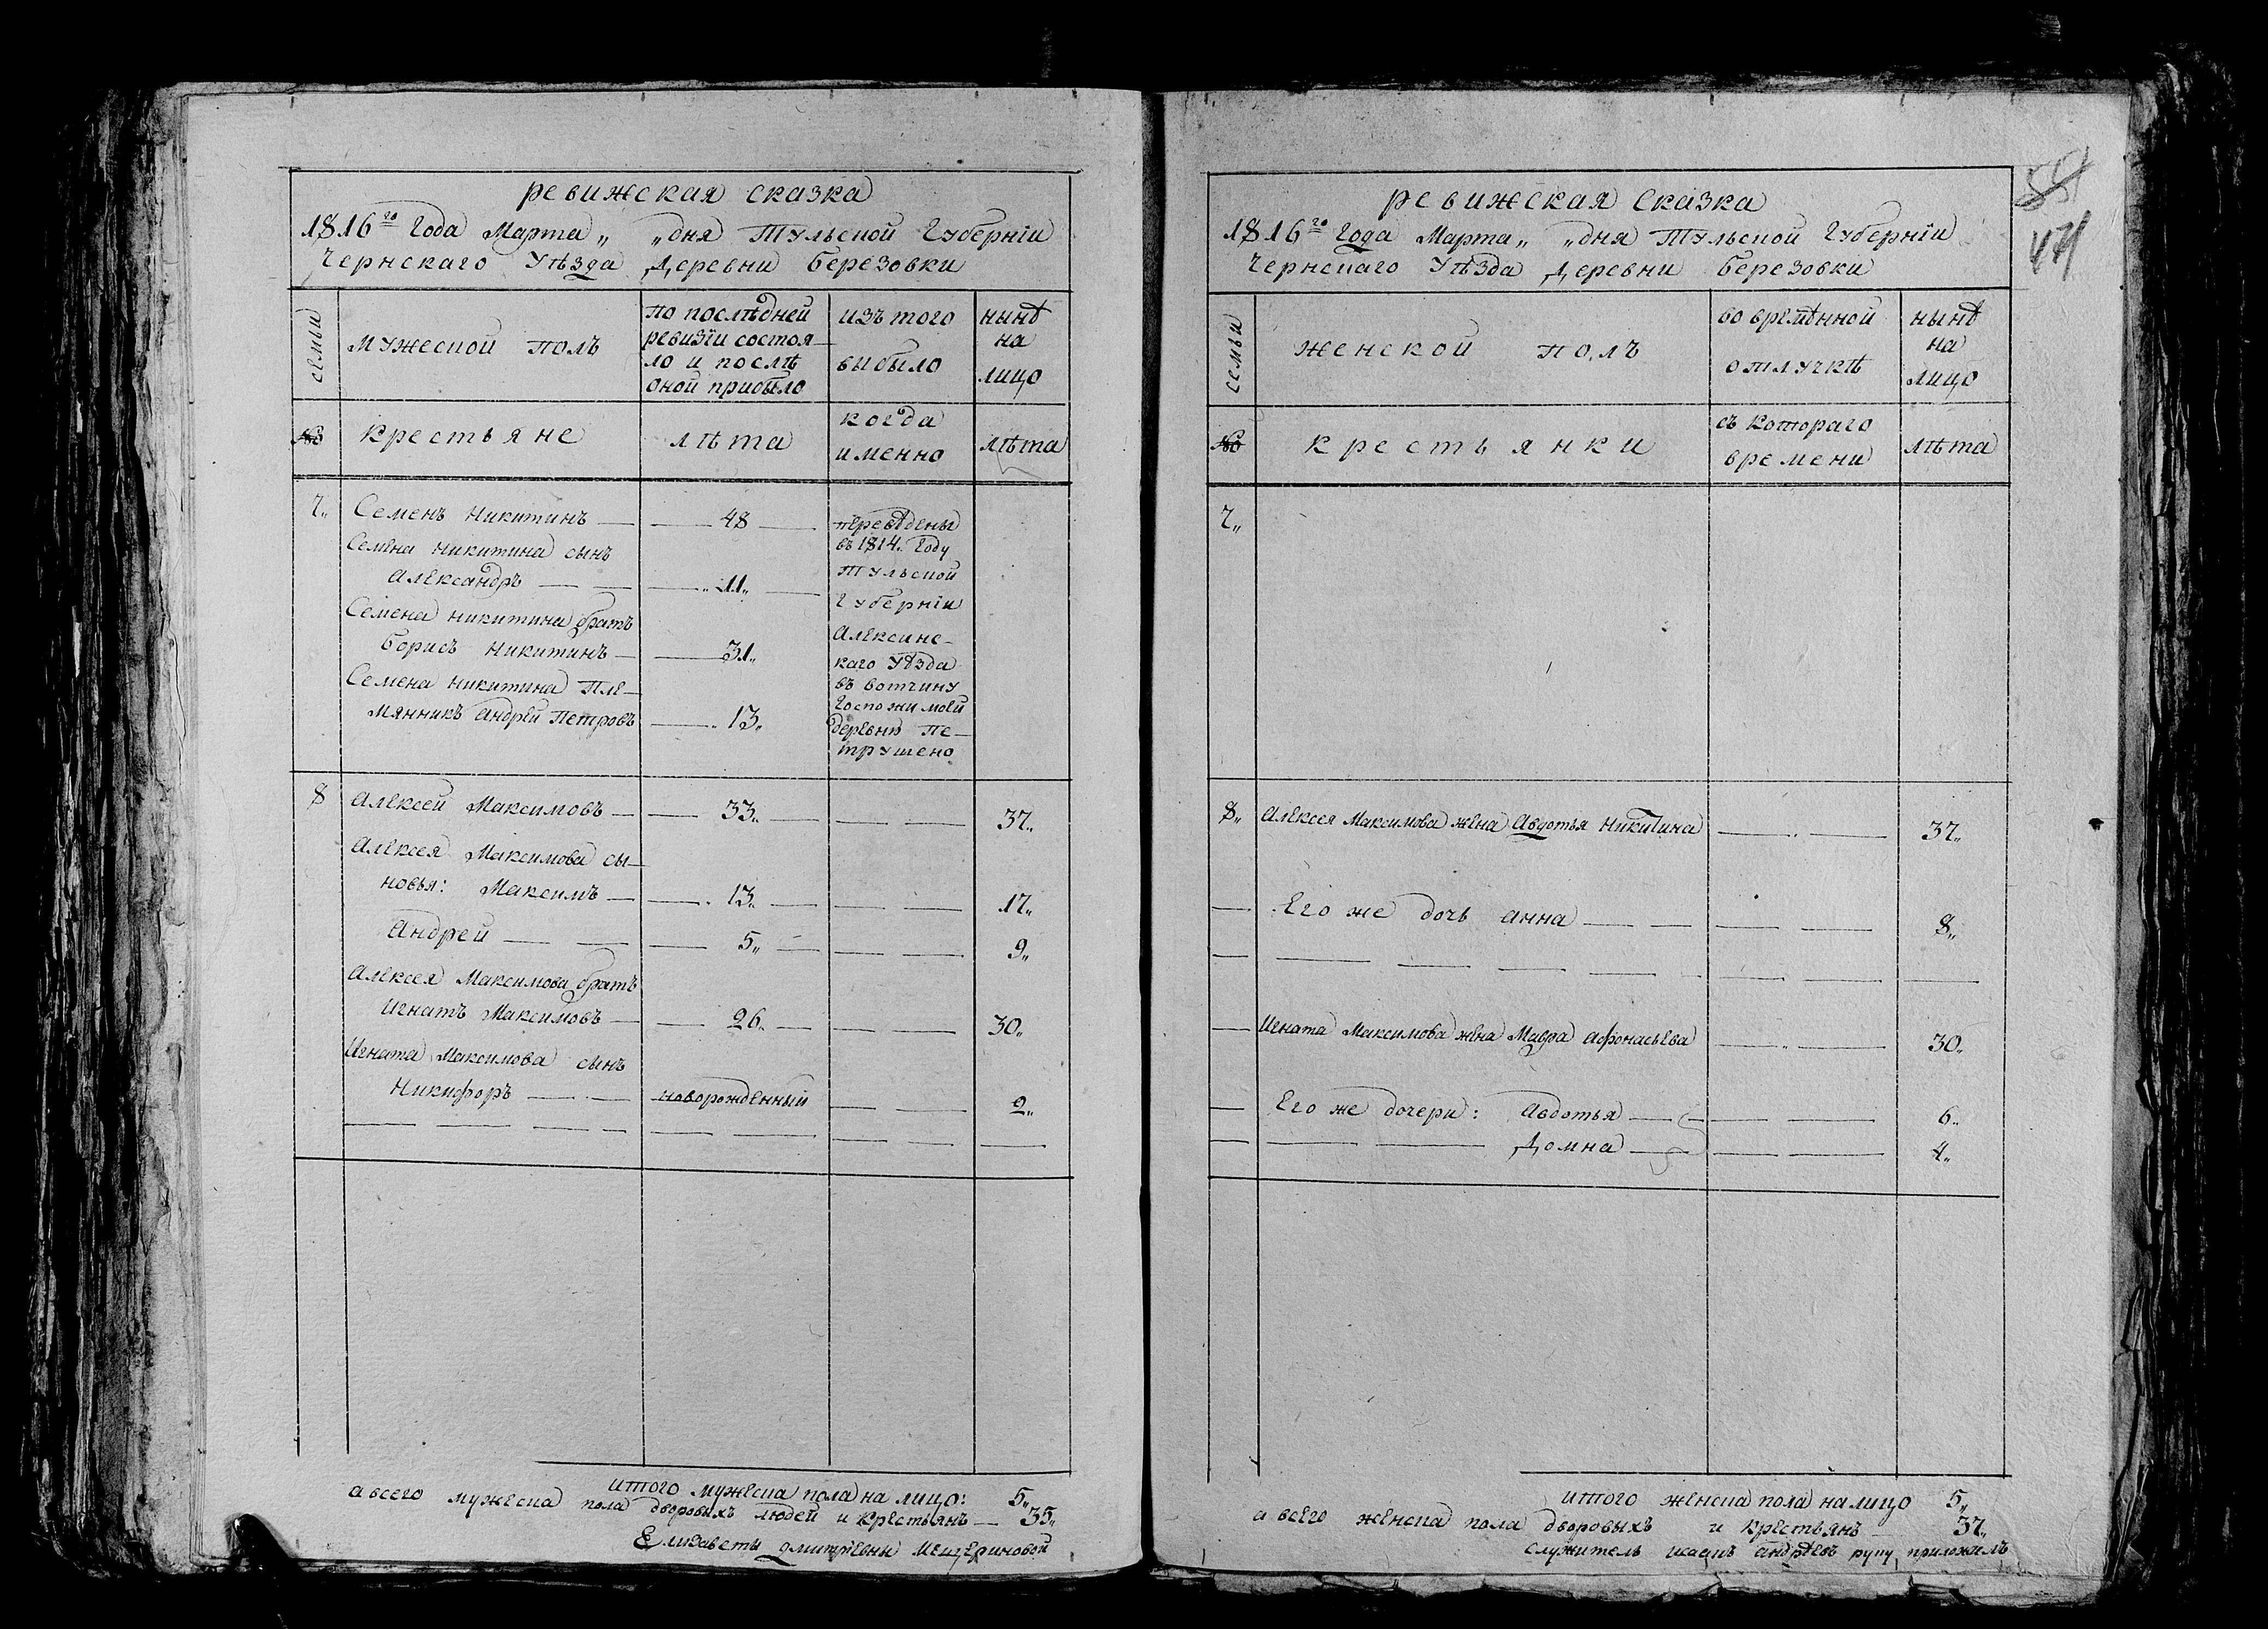 ревижская сказка
1816го Года Марта „ „дня Тульской Губерніи
Чернскаго Уѣзда Деревни Березовки
семьи
мужеской полъ
по послѣдней
ревизіи состоя—
ло и послѣ
оной прибыло
изъ того
выбыло
нынѣ
на
лицо
№
крестьяне
лѣта
когда
именно
лѣта
7„ Семенъ Никитинъ — 48 —
Семена Никитина сынъ
Александръ — — „11„ —
Семена Никитина братъ
Борисъ Никитинъ — 31„
Семена Никитина Пле—
мянникъ Андрей Петровъ — 13„
переведены
въ 1814. Году
Тульской
Губерніи
Алексинс—
каго Уѣзда
въ вотчину
Госпожи моей
деревню Пе—
трушено
8 Алексей Максимовъ — 33„ — — — 37„
Алексея Максимова сы—
новья: Максимъ — 13„ — — — 17„
Андрей — — 5„ — — — 9„
Алексея Максимова братъ
Игнатъ Максимовъ — 26„ — — — 30„
Игната Максимова сынъ
Никифоръ — — новорожденный — — 2„
итого мужеска пола на лицо: 5„
а всего мужеска пола дворовыхъ людей и крестьянъ — 35„
Елизаветы Дмитріевны Мещериновой
551
471
ревижская сказка
1816го Года Марта„ „дня Тульской Губерніи
Чернскаго Уѣзда Деревни Березовки
семьи
женской полъ
во времѣнной
отлучкѣ
нынѣ
на
лицо
№
крестьянки
съ котораго
времени
лѣта
7„
8„ Алексея Максимова жена Авдотья Никитина — „ — 37„
— Его же дочь Анна — — — — 8„
— Игната Максимова жена Мавра Афонасьева — „ — 30„
— Его же дочери: Авдотья — — — — 6„
— — — Домна — — — 4„
итого женска пола на лицо 5„
а всего женска пола дворовыхъ и крестьянъ — 37„
служитель Исаанъ Андрѣевъ руку приложилъ